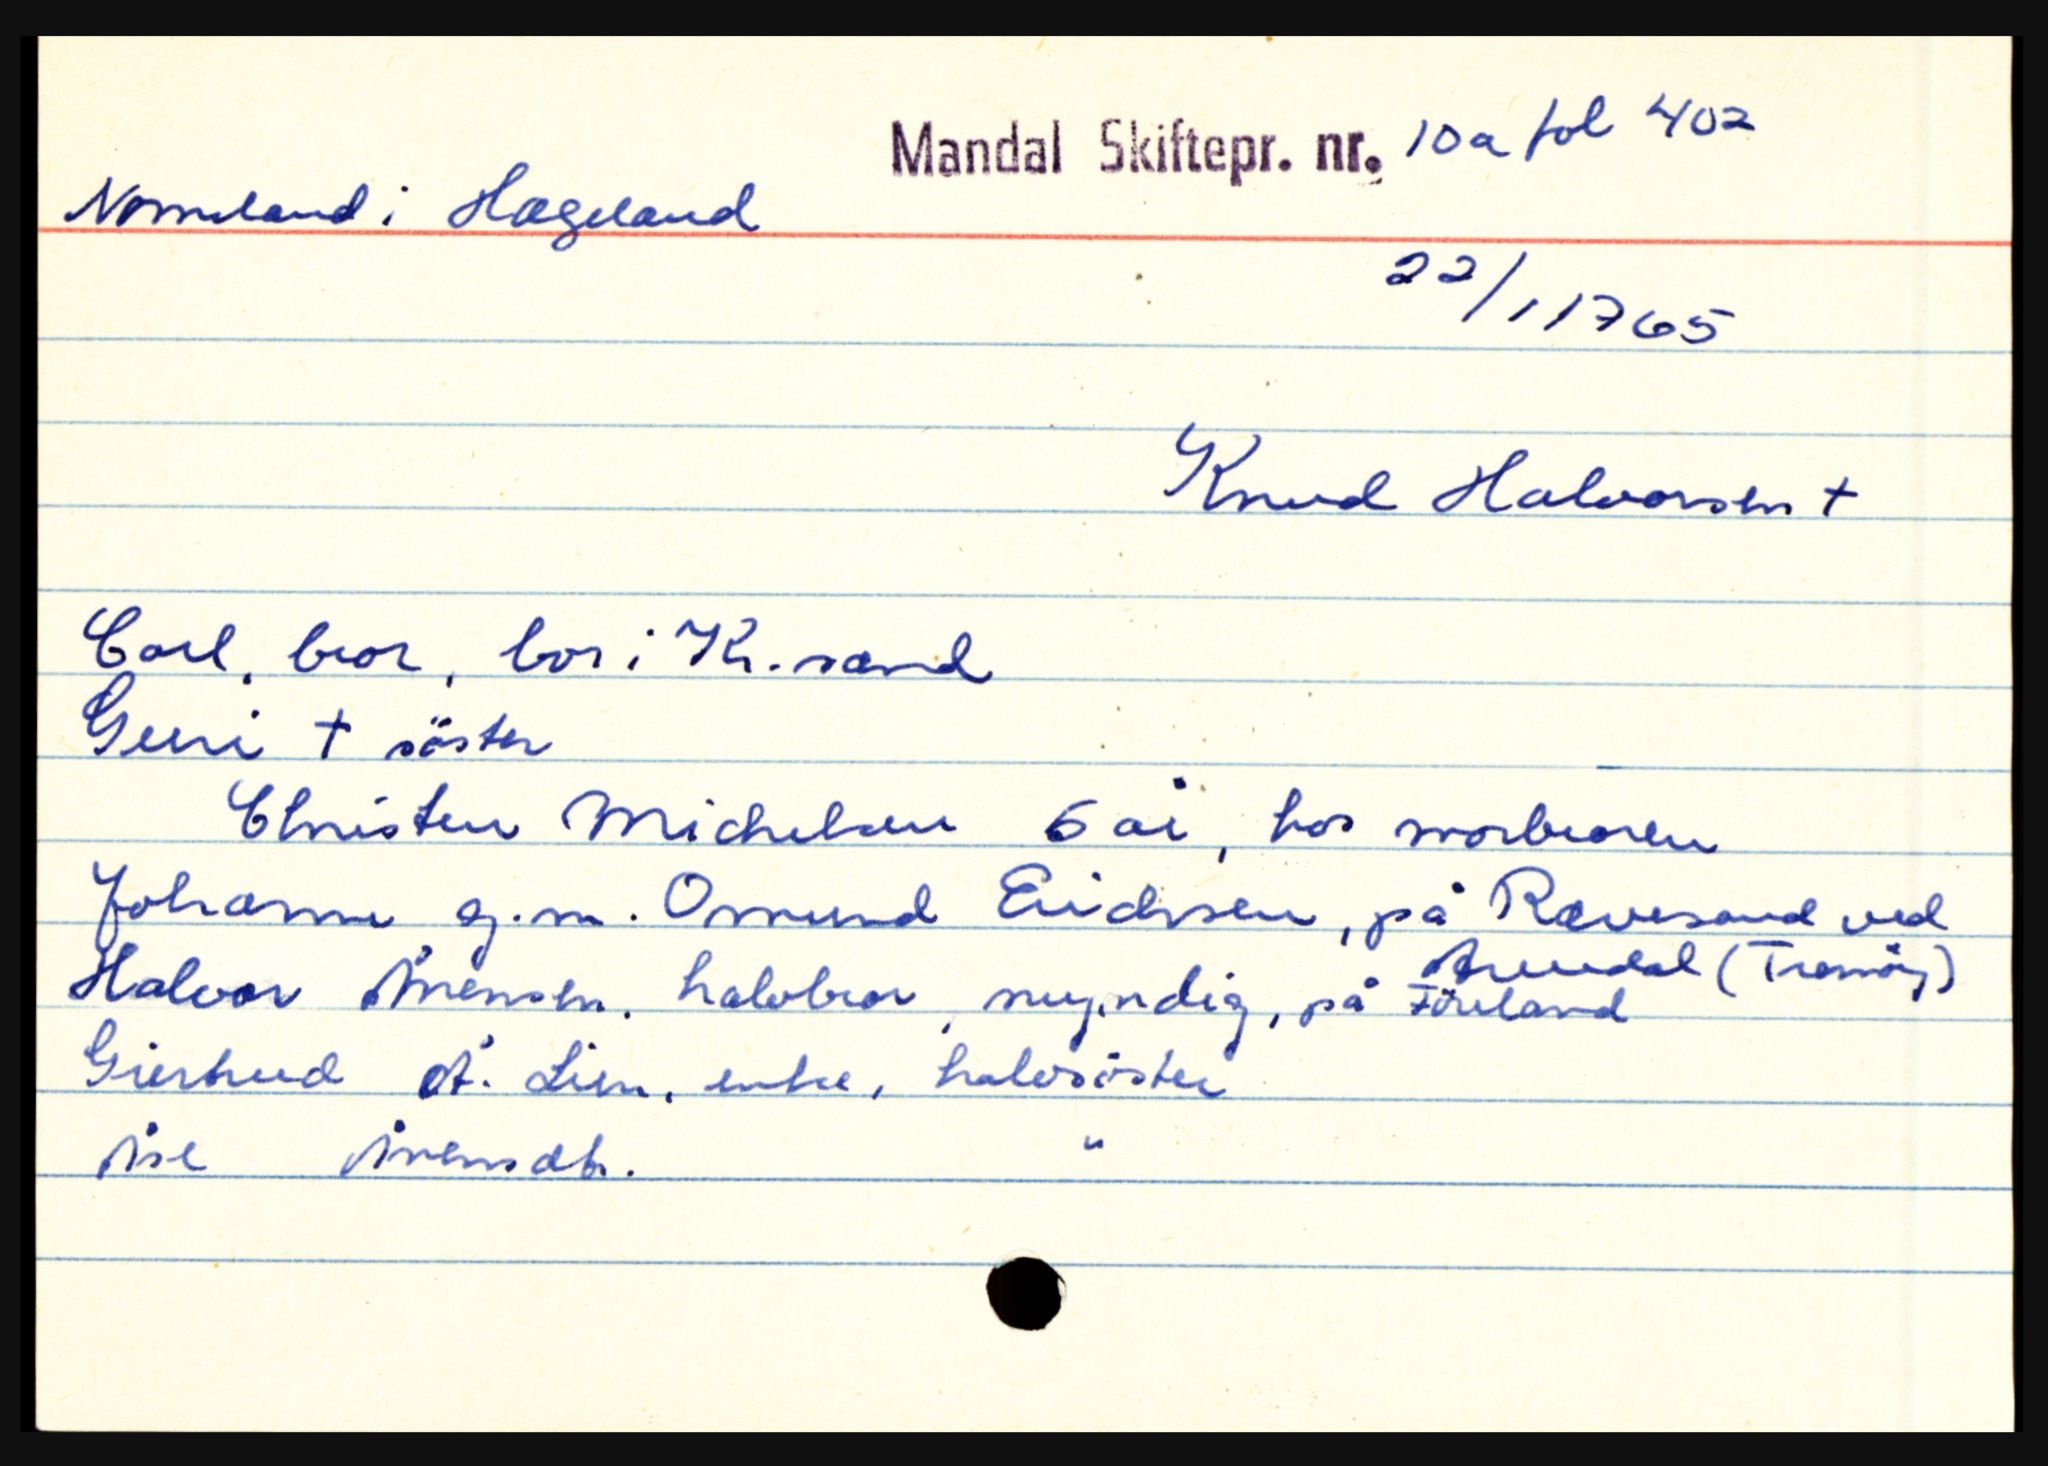 Mandal Skiftepr. nr. 10a fol 402
Nomeland i Hægeland
22/1 1765
Knud Halvorsen +
Carl, bror, bor i Kr.sand
Guri + söster
Christen Michelsen 6 år, hos morbroren
Johanne g.m. Omund Erichsen, på Rævesand ved
Arendal (Tromöy)
Halvor Ånensen, halvbror, myndig, på Föreland
Giertrud A. Lien, enke, halvsöster
Åse Ånensdtr. "